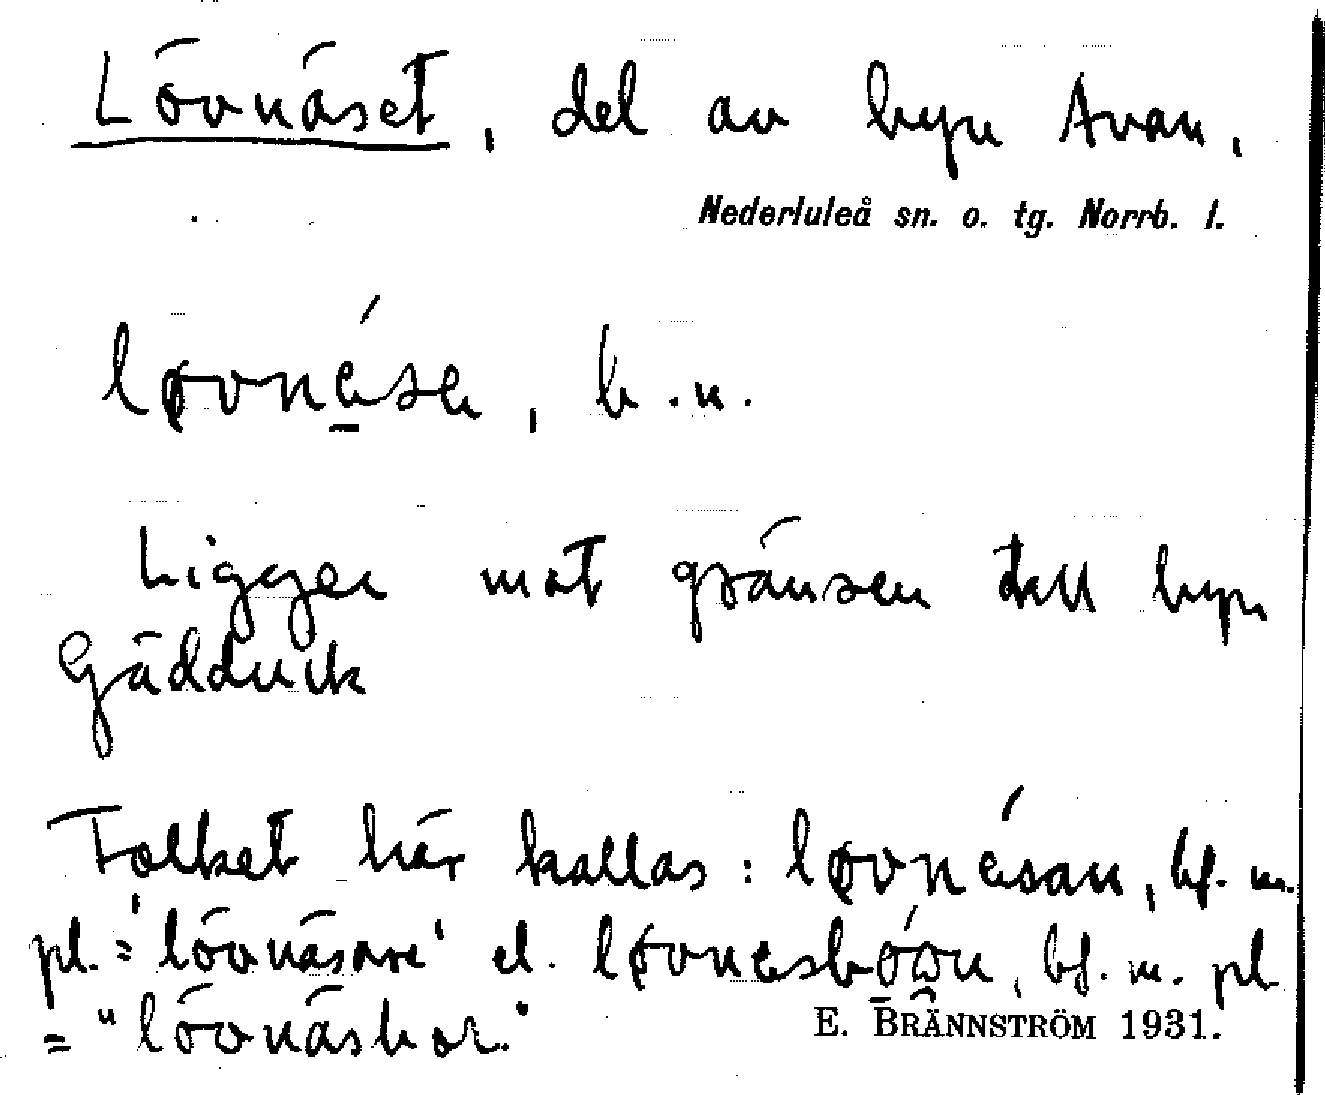 Lövnäset, del av byn Avan,
Nederluleå sn. o. tg. Norrb. l.
løvnése, b.n.
Ligger mot gränsen till byn
Gäddvik
Folket här kallas: løvnésan, bf. m.
pl. = 'lövnäsare' el. løvnesbóɷn, bf. m. pl
= "lövnäsbor."
E. BRÄNNSTRÖM 1931.